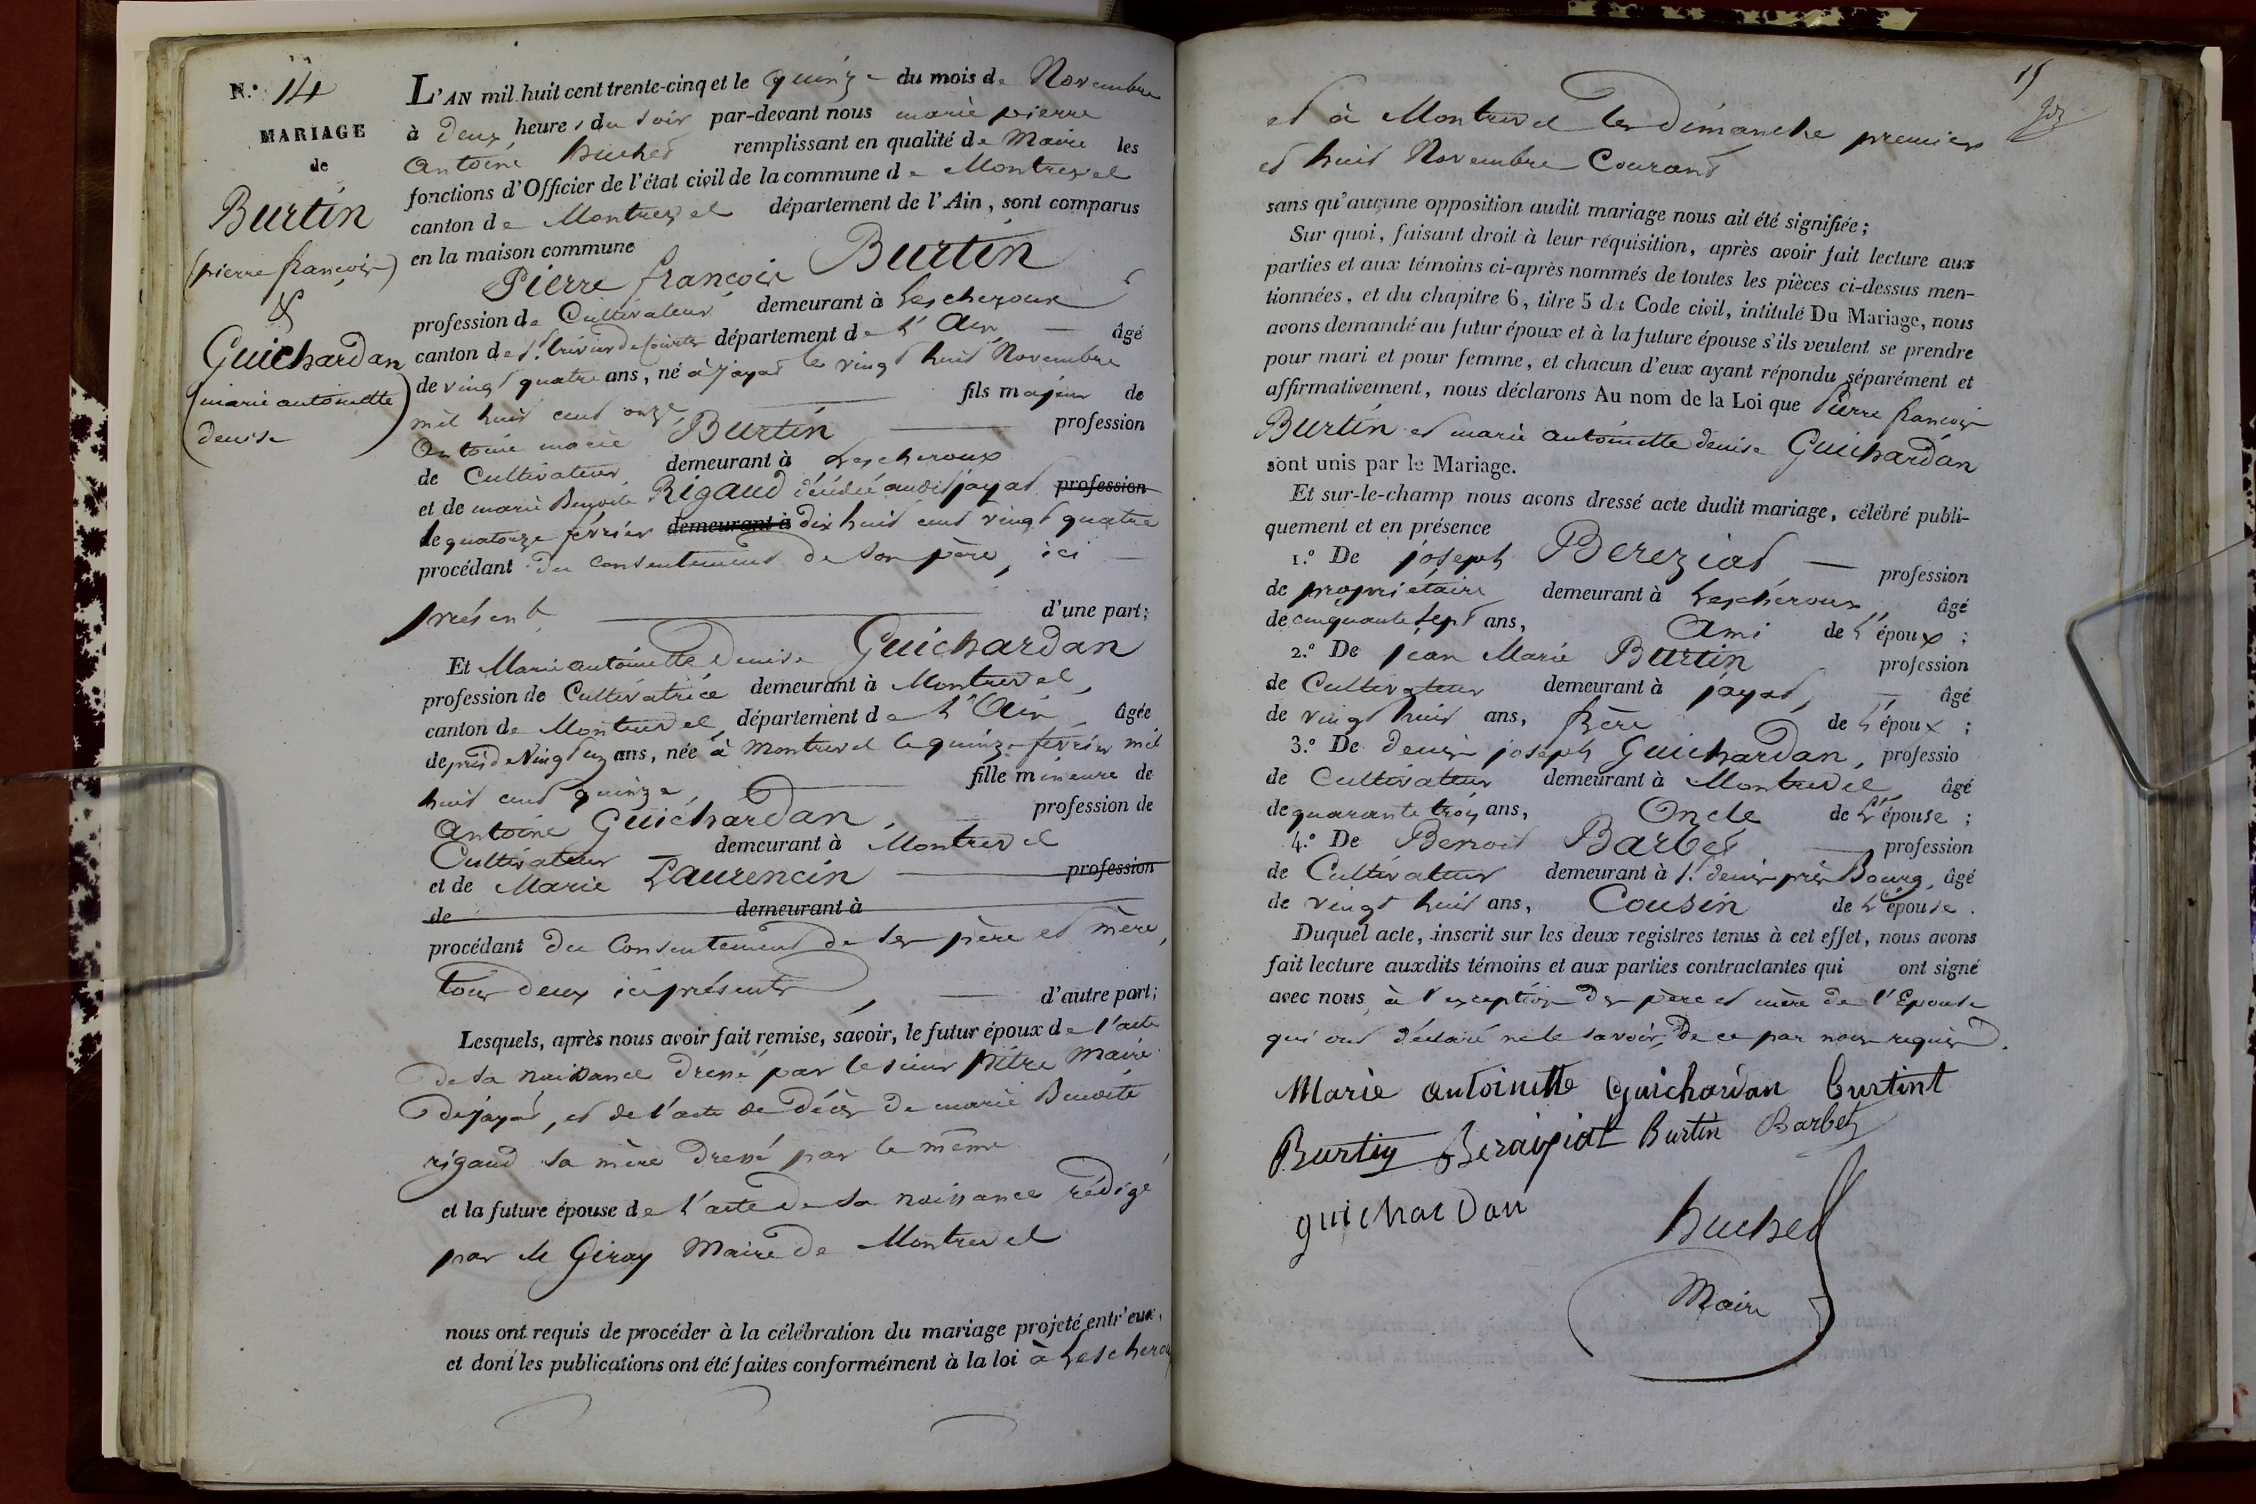 N.º 14
MARIAGE
de
Burtin
(pierre françois)
&
Guichardan
(marie antoinette
denise)
L'AN mil huit cent trente-cinq et le quinze du mois de Novembre
à deux heures du soir par-devant nous marie pierre
antoine huchet remplissant en qualité de Maire les
fonctions d'Officier de l'état civil de la commune de Montrevel
canton de Montrevel département de l'Ain, sont comparus
en la maison commune
Pierre françois Burtin
profession de Cultivateur demeurant à Lescheroux
canton de St. trivier de Courtes département de L'Ain âgé
de vingt quatre ans, né à Jayat le vingt huit Novembre
mil huit cent onze fils majeur de
Antoine marie Burtin profession
de Cultivateur demeurant à Lescheroux
et de marie Benoite Rigaud décédée audit jayat profession
le quatorze février demeurant à dix huit cent vingt quatre
procédant du consentement de son père, ici
présent d'une part;
Et Marie antoinette Denise Guichardan
profession de Cultivatrice demeurant à Montrevel,
canton de Montrevel, département de L'Ain, âgée
de près de Vingt un ans, née à Montrevel le quinze février mil
huit cent quinze, fille mineure de
Antoine Guichardan, profession de
Cultivateur demeurant à Montrevel
et de Marie Laurencin profession
de demeurant à
procédant du Consentement de ses père et mère,
tous deux ici présents, d'autre part;
Lesquels, après nous avoir fait remise, savoir, le futur époux de l'acte
de sa naissance dressé par le sieur pitre Maire
de jayat, et de l'acte de décès de marie Benoite
rigaud sa mère dressé par le même
et la future épouse de l'acte de sa naissance rédigé
par M Giroy Maire de Montrevel
nous ont requis de procéder à la célébration du mariage projeté entr'eux,
et dont les publications ont été faites conformément à la loi à Lescheroux
15
et à Montrevel les dimanche premier
et huit Novembre Courant
sans qu'aucune opposition audit mariage nous ait été signifiée;
Sur quoi, faisant droit à leur réquisition, après avoir fait lecture aux
parties et aux témoins ci-après nommés de toutes les pièces ci-dessus men-
tionnées, et du chapitre 6, titre 5 du Code civil, intitulé Du Mariage, nous
avons demandé au futur époux et à la future épouse s'ils veulent se prendre
pour mari et pour femme, et chacun d'eux ayant répondu séparément et
affirmativement, nous déclarons Au nom de la Loi que Pierre françois
Burtin et marie antoinette denise Guichardan
sont unis par le Mariage.
Et sur-le-champ nous avons dressé acte dudit mariage, célébré publi-
quement et en présence
1.º De joseph Bereziat profession
de propriétaire demeurant à Lescheroux, âgé
de cinquante sept ans, Ami de L'époux;
2.º De jean Marie Burtin profession
de Cultivateur demeurant à jayat, âgé
de vingt huit ans, frère de L'époux;
3.º De denis joseph Guichardan, professio
de Cultivateur demeurant à Montrevel, âgé
de quarante trois ans, Oncle de L'épouse;
4.º De Benoit Barbet profession
de Cultivateur demeurant à St. denis près Bourg, âgé
de vingt huit ans, Cousin de L'épouse.
Duquel acte, inscrit sur les deux registres tenus à cet effet, nous avons
fait lecture auxdits témoins et aux parties contractantes qui ont signé
avec nous, à l'exception des père et mère de l'Epouse
qui ont déclaré ne le savoir, de ce par nous requis.
Marie antoinette guichardan burtint
Burtin Beraiziat Burtin Barbet
guichardan
huchet
Maire